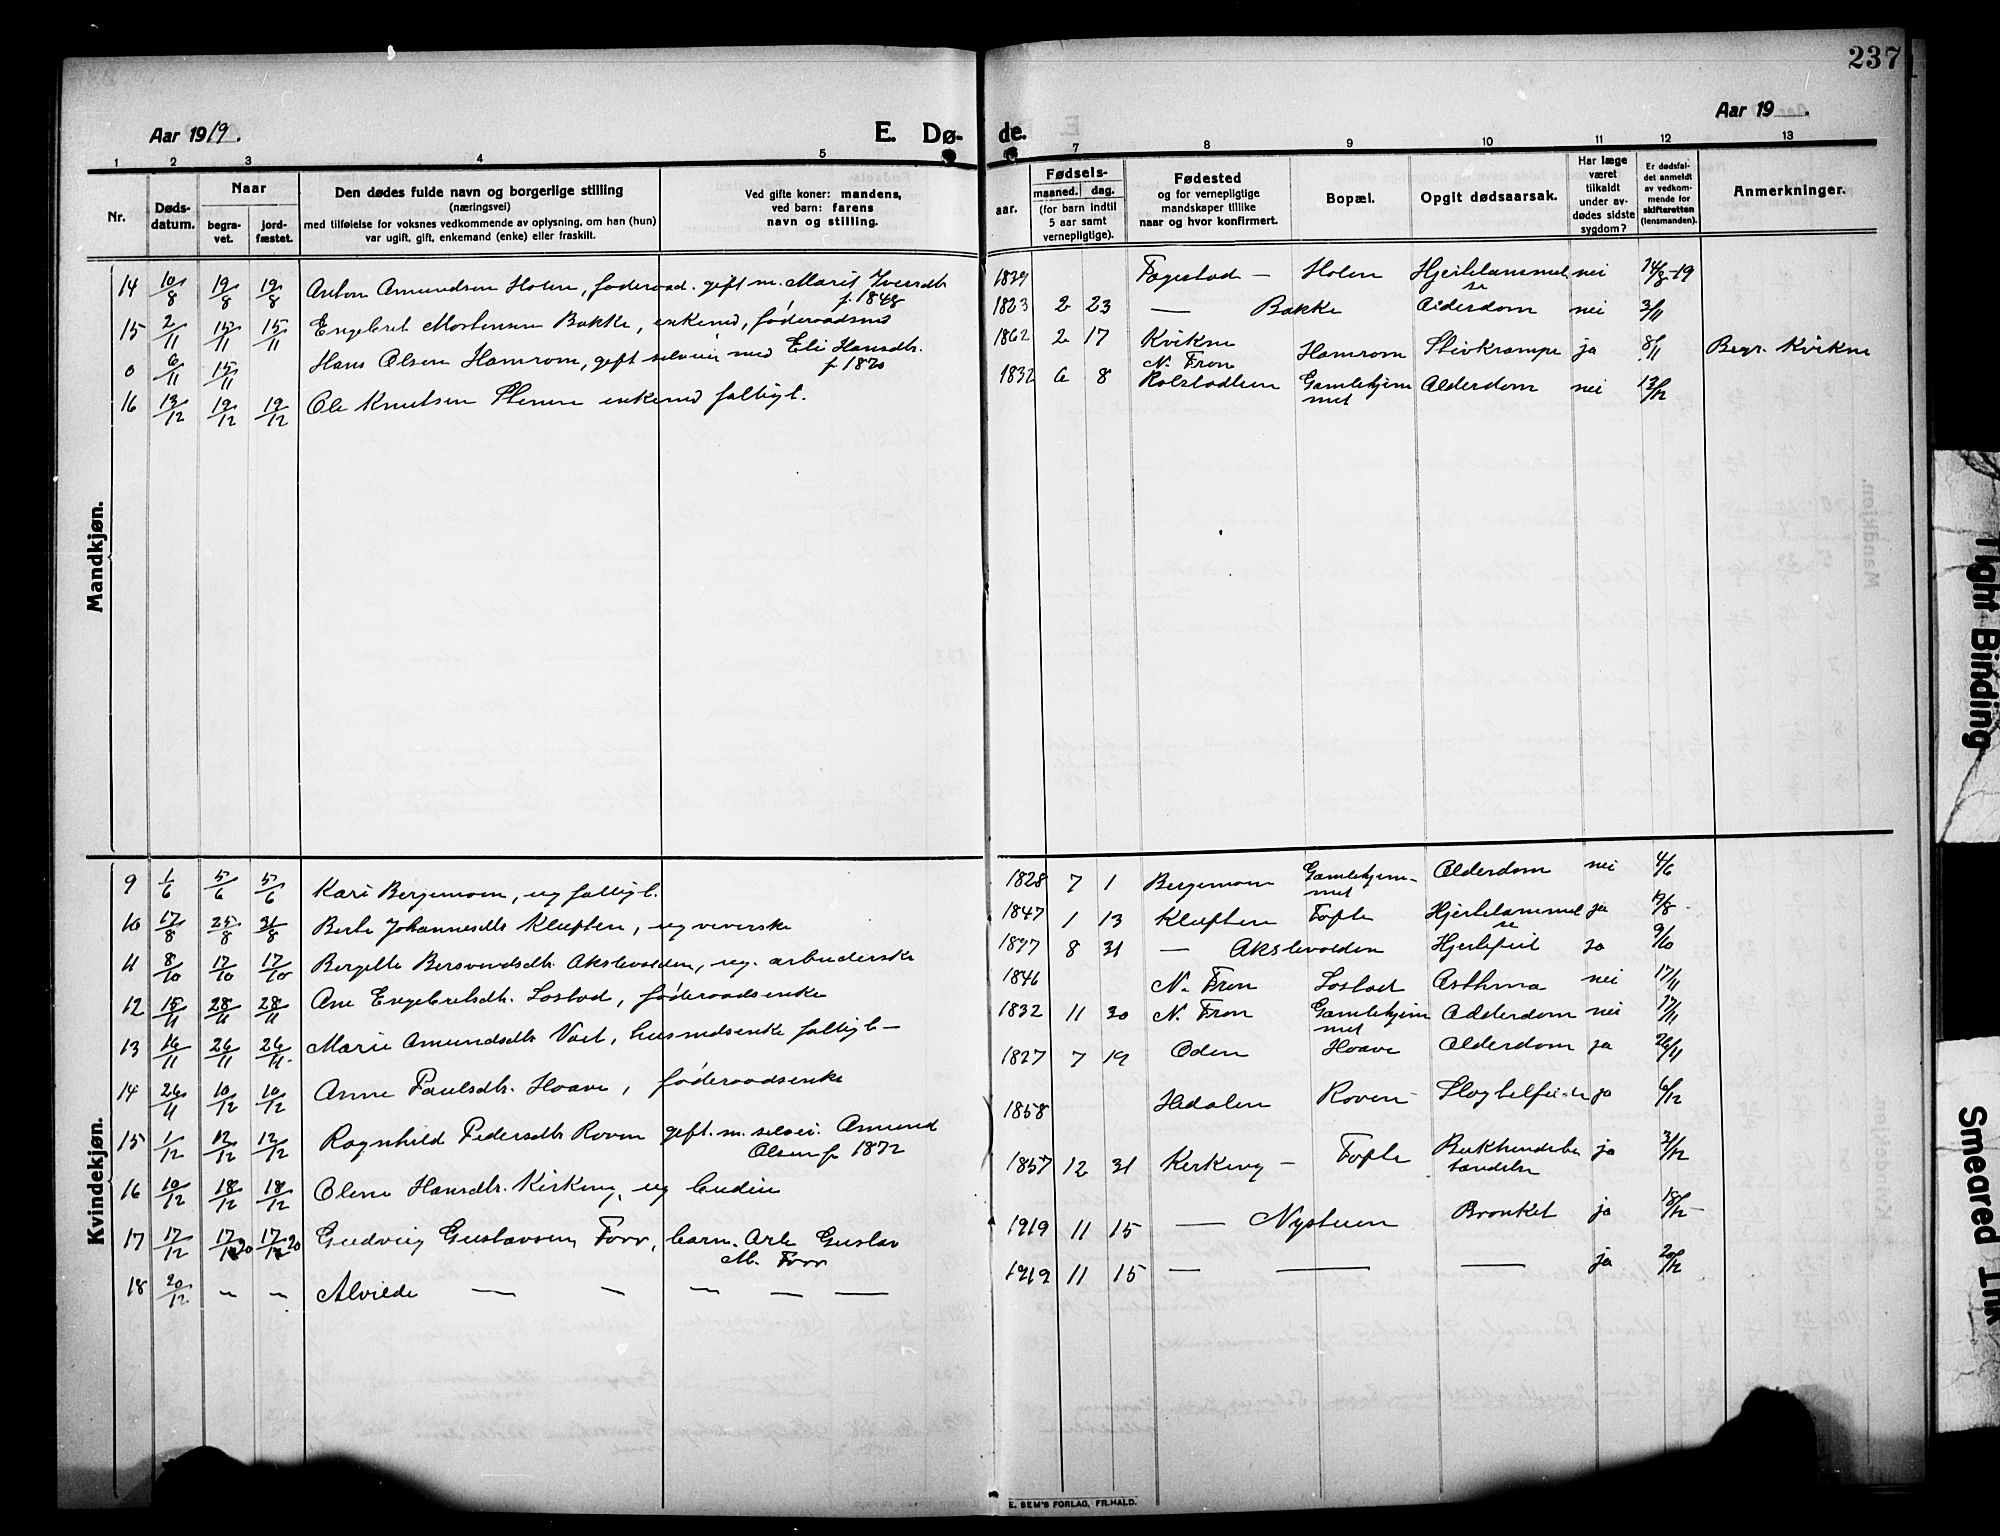 237
Aar 1919. E. Dø- de. Aar 19 .
1 2 3 4 5 7 8 9 10 11 12 13
Nr. Døds-datum. Naar begra-vet. jord-fæstet. Den dødes fulde navn og borgerlige stilling (næringsvei) med tilføielse for voksnes vedkommende av oplysning, om han (hun) var ugift, gift, enkemand (enke) eller fraskilt. Ved gifte koner: mandens, ved barn: farens navn og stilling. aar. Fødsels- maaned. dag. (for barn indtil 5 aar samt vernepligtige). Fødested og for vernepligtige mandskaper tillike naar og hvor konfirmert. Bopæl. Opgit dødsaarsak. Har læge været tilkaldt under av-dødes sidste sygdom? Er dødsfal-det anmeldt av vedkom-mende for skifteretten (lensmanden). Anmerkninger.
Mandkjøn.
14 10/8 19/8 19/8 Anton Amundsen Holen, føderaad. gift m. Marit Iversdtr f. 1848 1839 Fagestad — Holen Hjertelammelse nei 14/8-19
15 2/11 15/11 15/11 Engebret Mortensen Bakke, enkemd, føderaadsmd 1823 2 23 — Bakke Alderdom nei 3/11
0 6/11 15/11 Hans Olsen Hamrom, gift selveier med Eli Hansdtr. f. 1870 1862 2 17 Kvikne N. Fron Hamrom Stivkrampe ja 8/11 Begr. Kvikne
16 13/12 19/12 19/12 Ole Knutsen Stenen enkemd fattigl. 1832 6 8 Rolstadlien Gamlehjemmet Alderdom nei 13/12
Kvindekjøn.
9 1/6 5/6 5/6 Kari Bergemoen, ug fattigl. 1828 7 1 Bergemoen Gamlehjem-met Alderdom nei 4/6
10 17/8 25/8 31/8 Berte Johannesdtr Kluften, ug veverske 1847 1 13 Kluften Tofte Hjertelammelse ja 19/8
11 8/10 17/10 17/10 Bergitte Bersvendsdtr. Akslevolden, ug. arbeiderske 1897 8 31 — Akslevolden Hjertefeil ja 9/10
12 15/11 28/11 28/11 Ane Engebretsdtr. Lostad, føderaadsenke 1846 N. Fron Lostad Asthma nei 17/11
13 16/11 26/11 26/11 Marie Amundsdtr Voit, husmdsenke fattigl — 1832 11 30 N. Fron Gamlehjemmet Alderdom nei 17/11
14 26/11 10/12 10/12 Anne Paulsdtr. Hoave, føderaadsenke 1827 7 19 Oden Hoave Alderdom ja 26/11
15 1/12 12/12 12/12 Ragnhild Pedersdtr Roven gift. m. selvei. Amund Olsen f 1872 1858 Hedalen Roven Slagtilfelde ja 6/12
16 10/12 18/12 18/12 Olene Hansdtr. Kirkeng, ug budeie 1857 12 31 Kirkeng — Tofte Bukhindebetændelse ja 31/12
17 17/12 17/1 20 17/1 20 Gudveig Gustavsen Forr, barn. Arb. Gustav M. Forr 1919 11 15 — Nystuen Bronkit ja 18/12
18 20/12 — — Alvilde — — — — — 1919 11 15 — — — ja 20/12
E. SEM'S FORLAG, FR.HALD.
Tight Binding
Smeared Ink